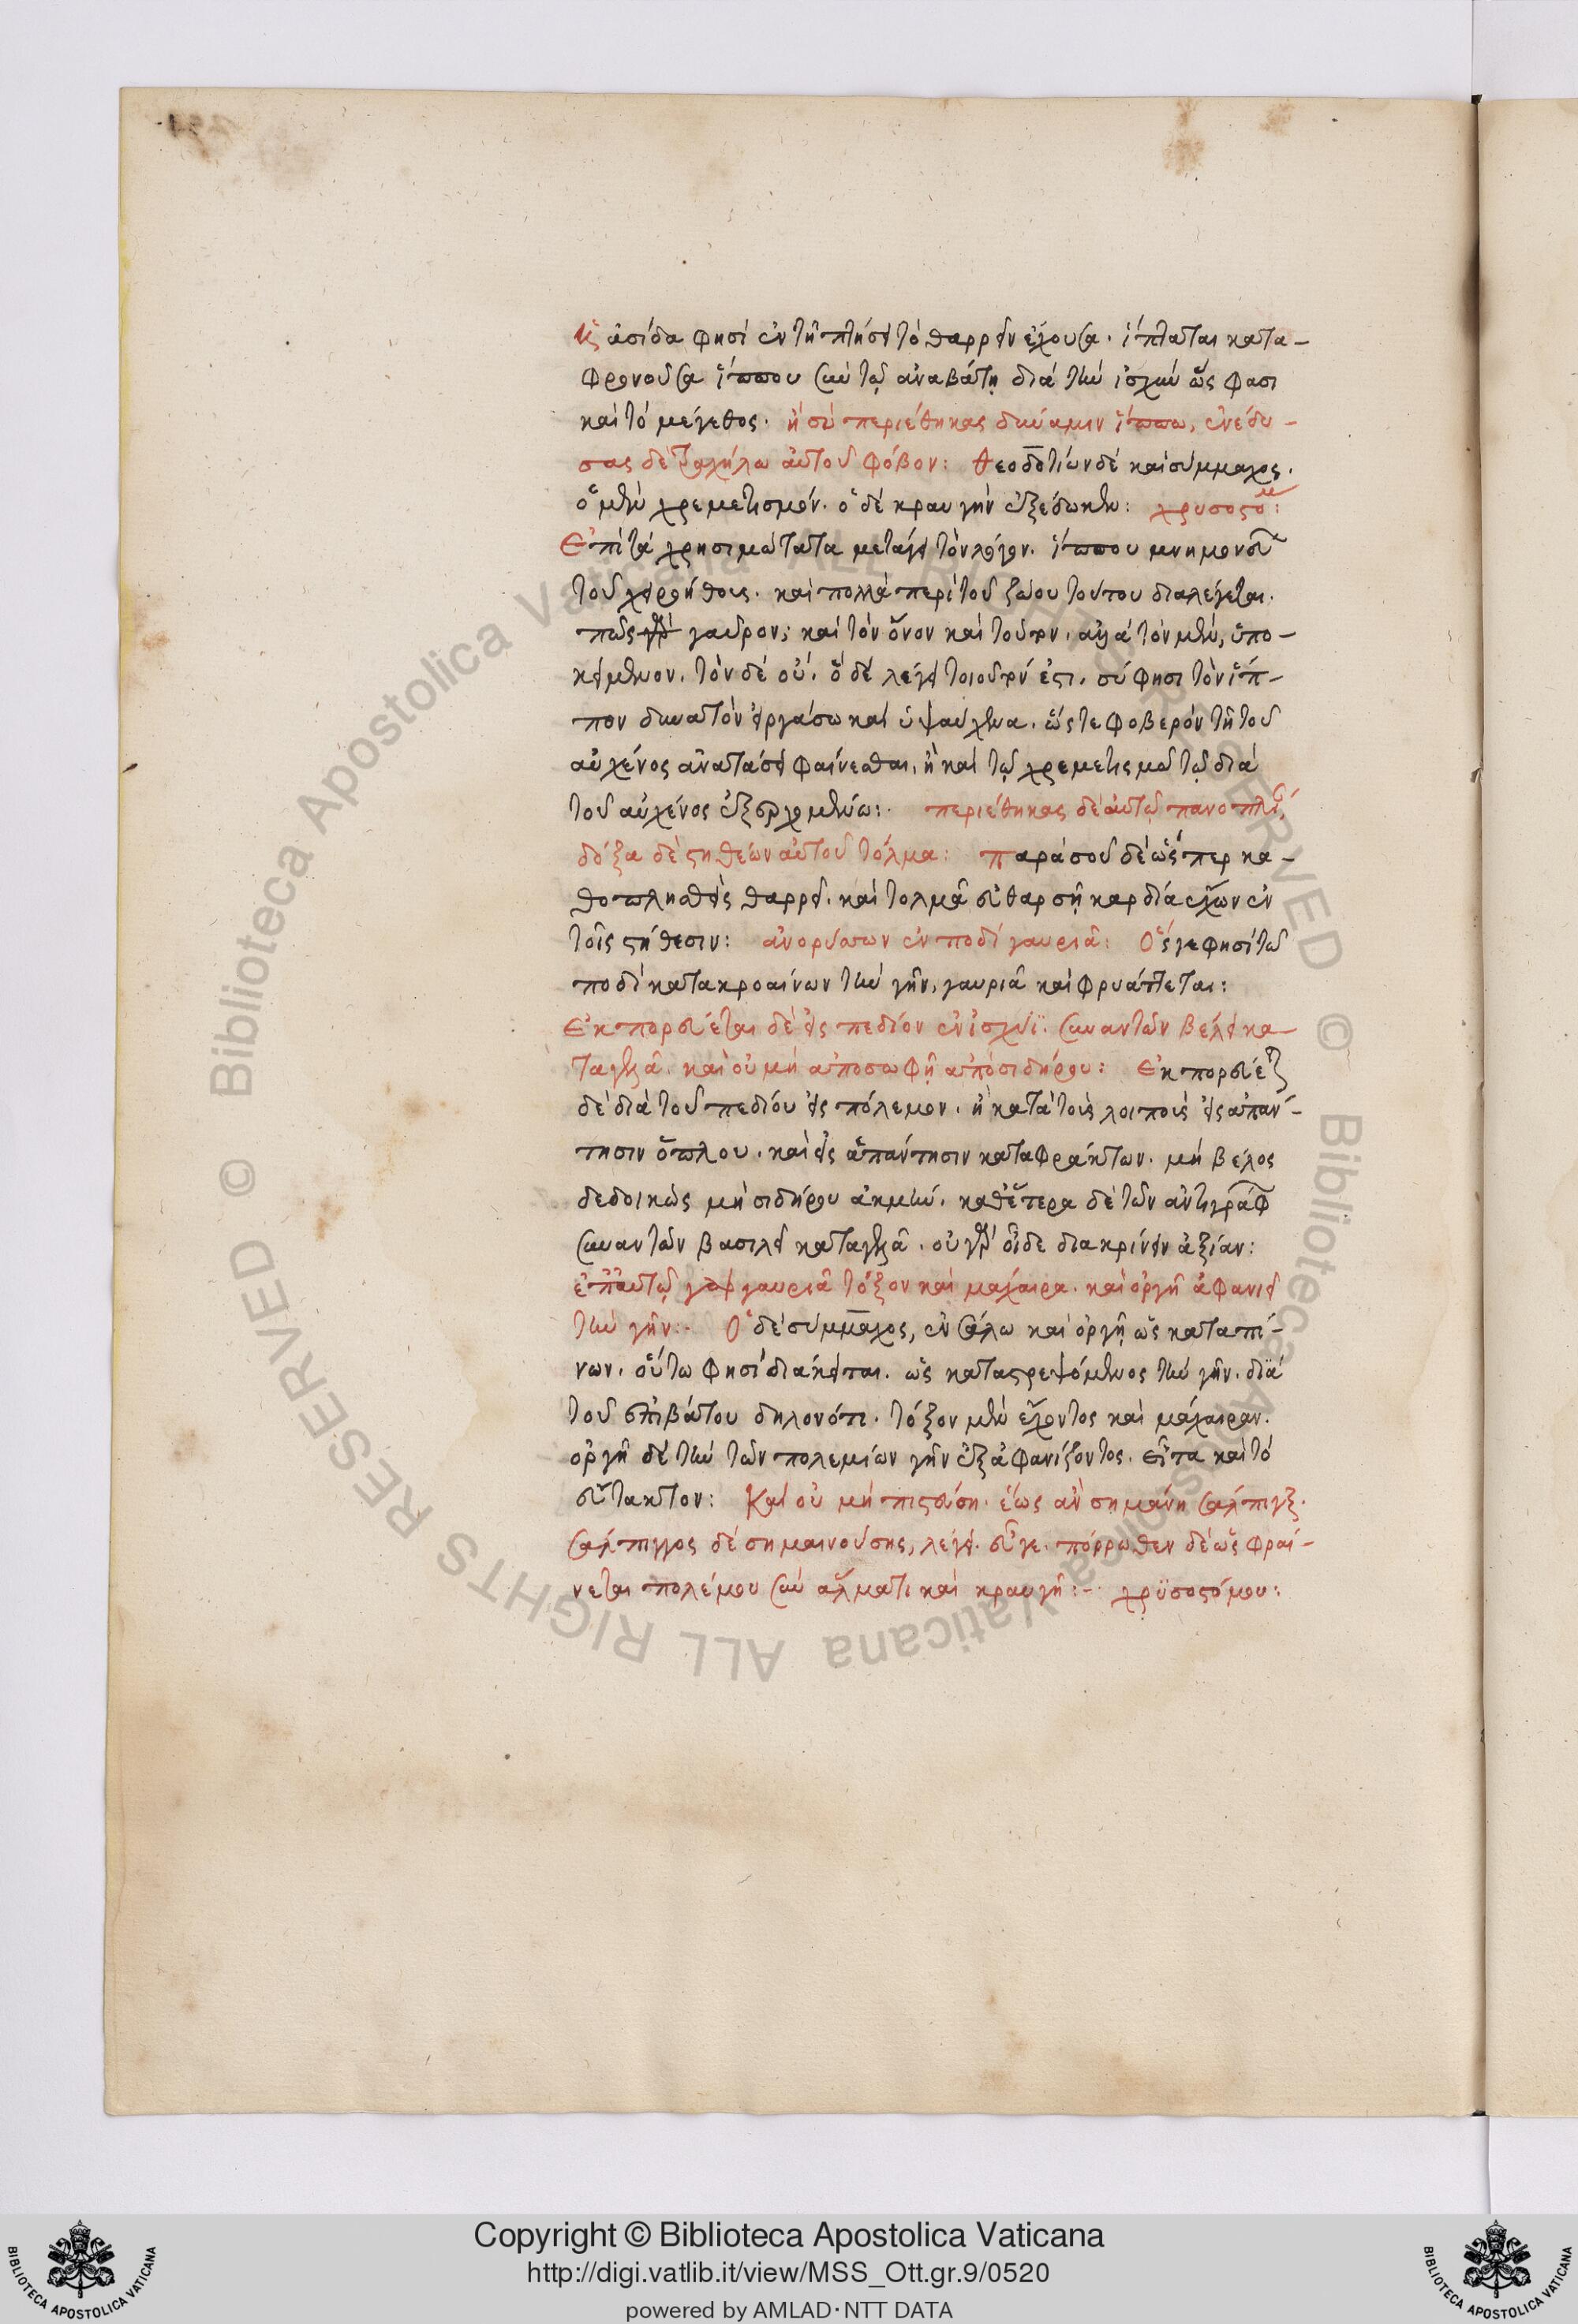 Ἡ ἀσίδα φησὶ ἐν τῆ πτήσει τὸ θαρρεῖν ἔχουσα. ἵπταται κατα-
φρονοῦσα ἵππου σὺν τῷ ἀναβάτῃ διὰ τὴν ἰσχὺν ὥς φασι
καὶ τὸ μέγεθος. ἢ σὺ περιέθηκας δύναμιν ἵππω, ἐνέδυ-
σας δὲ τραχήλω αὐτοῦ φόβον: θεοδοτίων δὲ καὶ σύμμαχος.
ὁ μὲν χρεμετισμόν. ὁ δὲ κραυγὴν ἐξέδωκεν: χρυσοστομ:
Ἐπὶ τὰ χρησιμώτατα μετάγει τὸν λόγον. ἵππου μνημονεύ
τοῦ χειροήθους. καὶ πολλὰ περὶ τοῦ ζώου τούτου διαλέγεται.
πῶς γαῦρον; καὶ τὸν ὄνον καὶ τοῦτον. ἀλλὰ τὸν μὲν, ὑπο-
κείμενον. τὸν δὲ οὐ. ὃ δὲ λέγει τοιοῦτόν ἐστι. σύ φησι τὸν ἵπ-
πον δυνατὸν εἰργάσω καὶ ὑψαύχενα. ὥστε φοβερὸν τῆ τοῦ
αὐχένος ἀναστάσει φαίνεσθαι, ἢ καὶ τῷ χρεμετισμῶ τῷ διὰ
τοῦ αὐχένος ἐξερχομένω: περιέθηκας δὲ αὐτῷ πανοπλίαν,
δόξα δὲ στηθέων αὐτοῦ τόλμα: παρὰ σοῦ δὲ ὥσπερ κα-
θοπλισθεὶς θαρρεῖ. καὶ τολμᾶ εὐθαρσῆ καρδίαν ἔχων ἐν
τοῖς στήθεσιν: ἀνορύσσων ἐν ποδὶ γαυριᾶ: Ὅς γε φησὶ τῶ
ποδὶ κατακροαίνων τὴν γῆν, γαυριᾶ καὶ φρυάττεται:
Ἐκπορεύεται δὲ εἰς πεδίον ἐν ἰσχύϊ. συναντῶν βέλει κα-
ταγελᾶ. καὶ οὐ μὴ ἀποστραφῆ ἀπὸ σιδήρου: Ἐκπορεύετ
δὲ διὰ τοῦ πεδίου εἰς πόλεμον. ἢ κατὰ τοὺς λοιποὺς εἰς ἀπάν-
τησιν ὅπλου. καὶ εἰς ἀπάντησιν καταφράκτων. μὴ βέλος
δεδοικὼς μὴ σιδήρου ἀκμήν. καθ' ἕτερα δὲ τῶν ἀντιγράφ
συναντῶν βασιλεῖ καταγελᾶ. οὐ γὰρ οἶδε διακρίνειν ἀξίαν:
ἐπ' αὐτῷ γαυριᾶ τόξον καὶ μάχαιρα. καὶ ὀργῆ ἀφανιεῖ
τὴν γῆν: Ὁ δὲ σύμμαχος, ἐν σάλω καὶ ὀργῆ ὡς καταπί-
νων. οὕτω φησὶ διάκειται. ὡς καταστρεψόμενος τὴν γῆν. διὰ
τοῦ ἐπιβάτου δηλονότι. τόξον μὲν ἔχοντος καὶ μάχαιραν.
ὀργῆ δὲ τὴν τῶν πολεμίων γῆν ἐξαφανίζοντος. εἶτα καὶ τὸ
εὔτακτον: Καὶ οὐ μὴ πιστεύση. ἕως ἂν σημάνη σάλπιγξ.
σάλπιγγος δὲ σημαινούσης, λέγει. εὖγε. πόρρωθεν δὲ ὀσφραί-
νεται πολέμου σὺν ἅλματι καὶ κραυγῆ: χρϋσοστόμου:
Copyright © Biblioteca Apostolica Vaticana
http://digi.vatlib.it/view/MSS_Ott.gr.9/0520
powered by AMLAD·NTT DATA